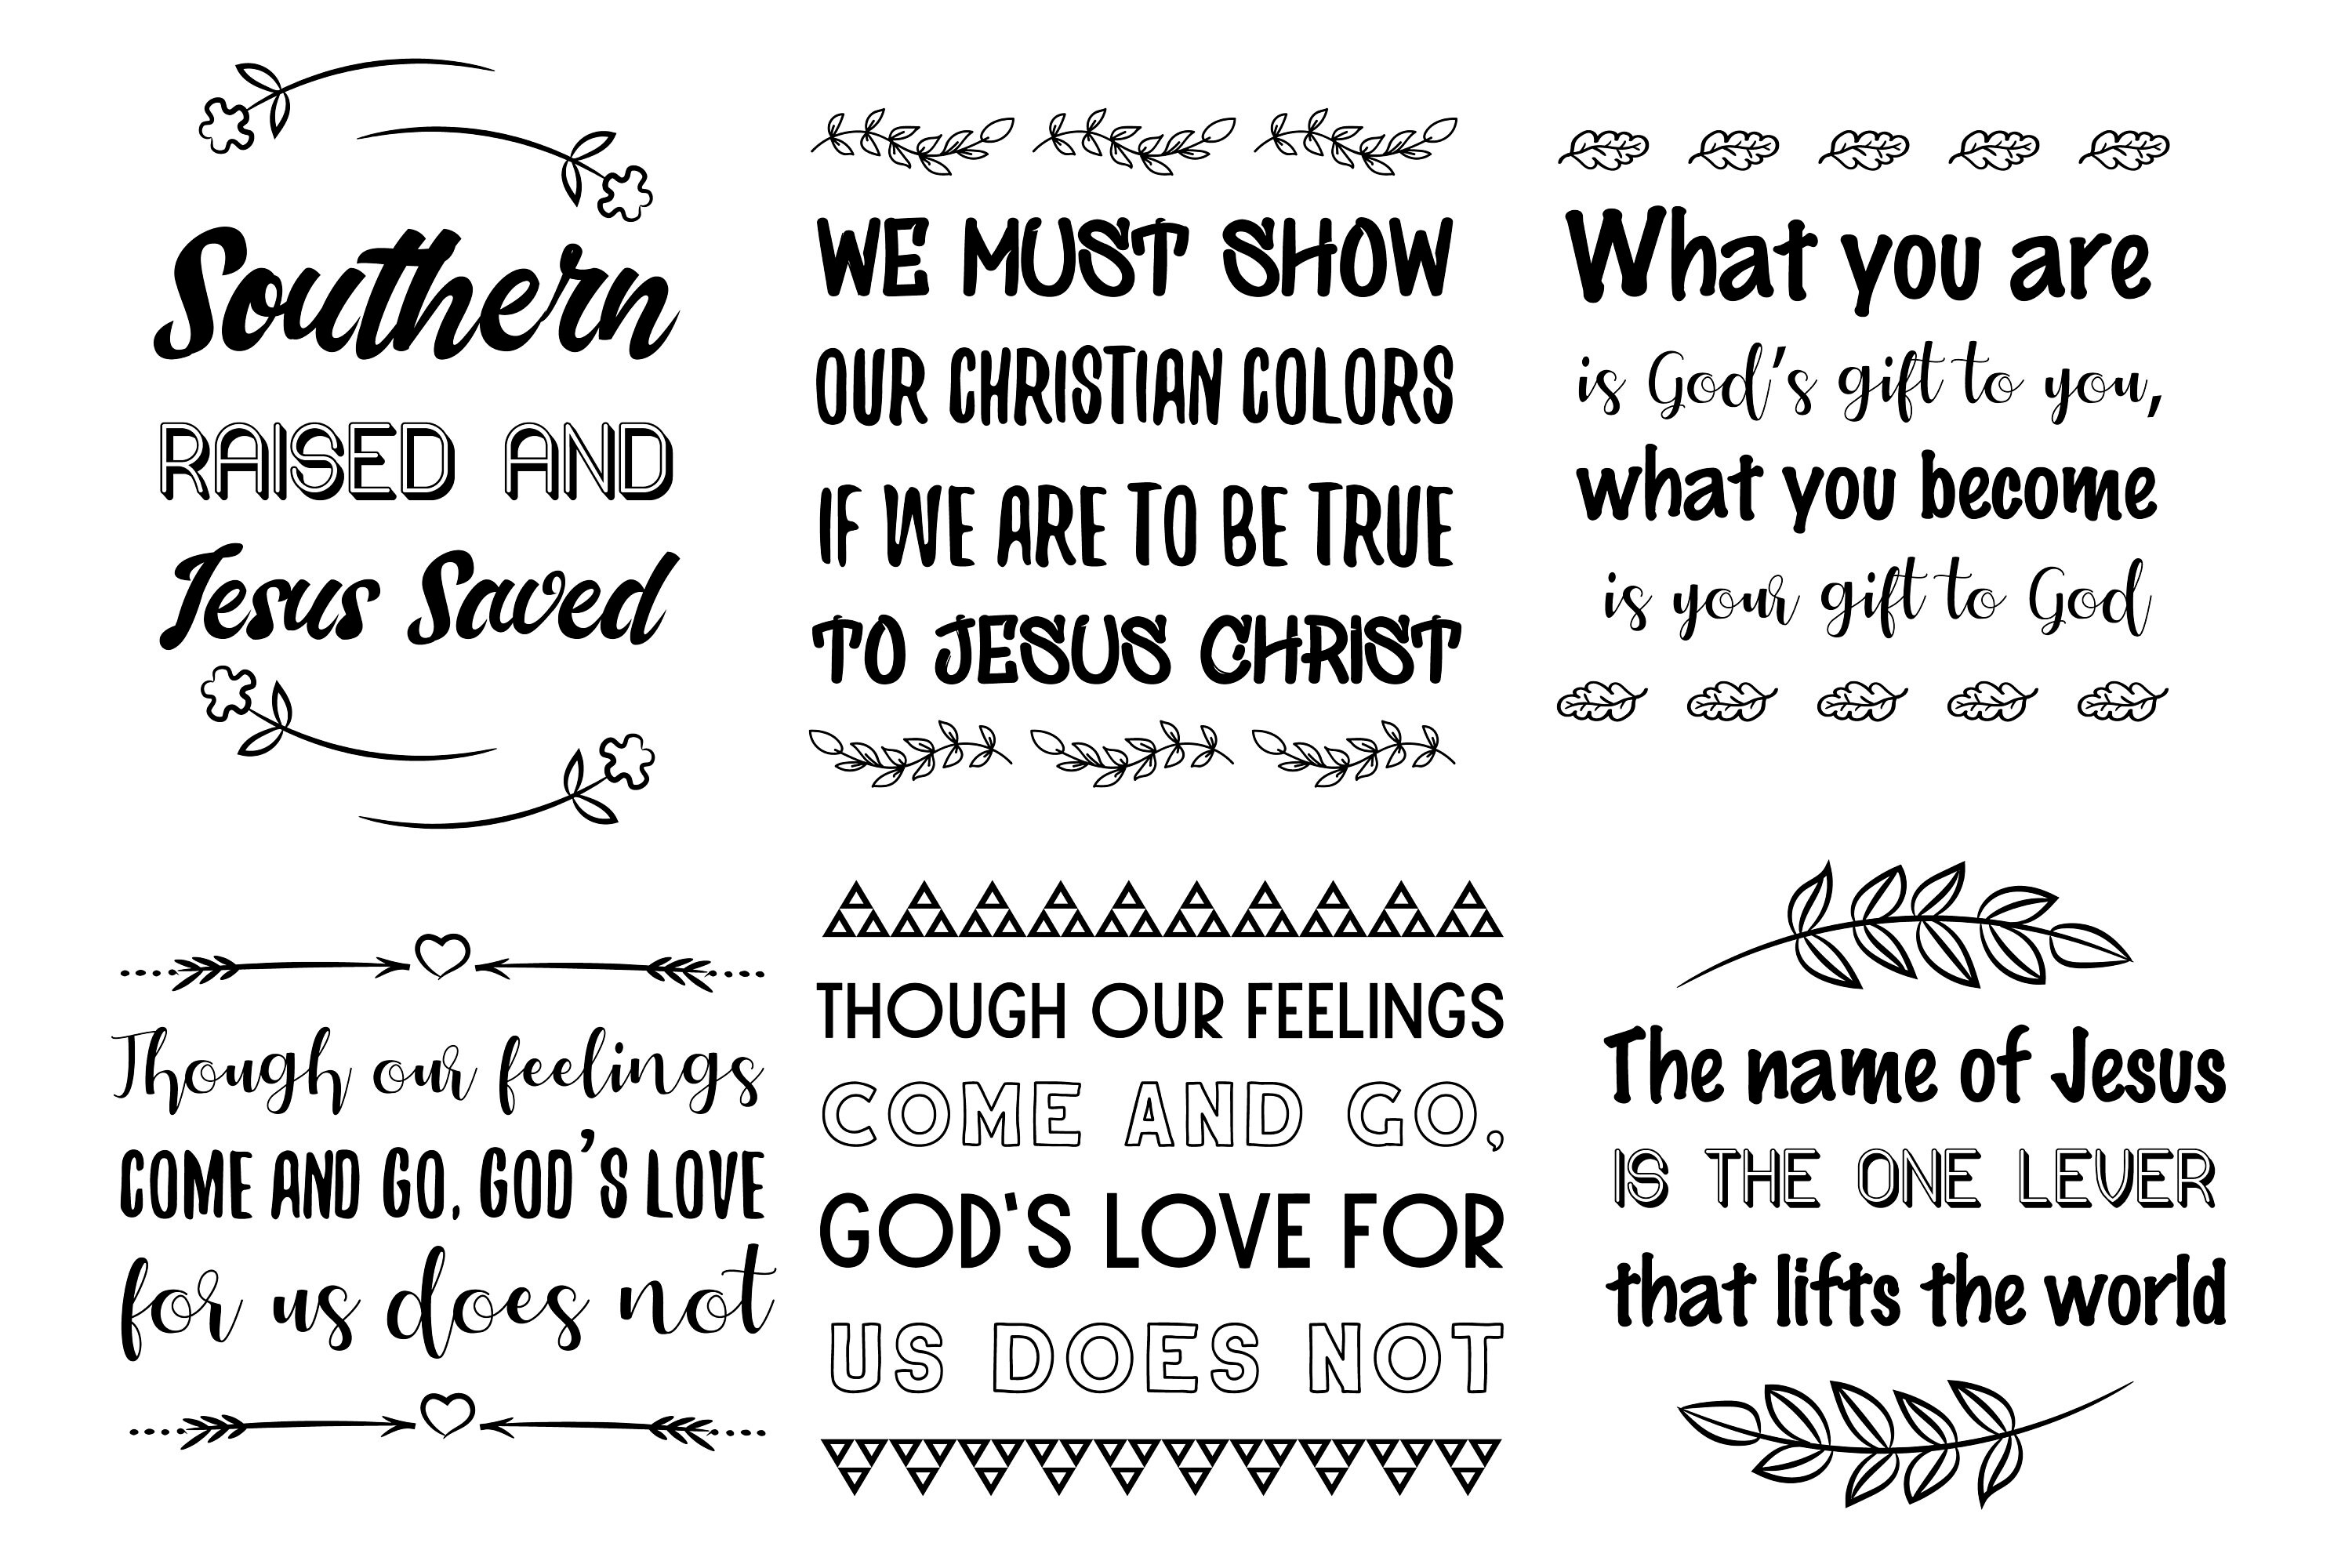 Southern
RAISED AND
Jesus Saved
WE MUST SHOW
OUR CHRISTIAN COLORS
IF WE ARE TO BE TRUE
TO JESUS CHRIST
What you are
is God's gift to you,
what you become
is your gift to God
Though our feelings
COME AND GO, GOD'S LOVE
for us does not
THOUGH OUR FEELINGS
COME AND GO,
GOD'S LOVE FOR
US DOES NOT
The name of Jesus
IS THE ONE LEVER
that lifts the world